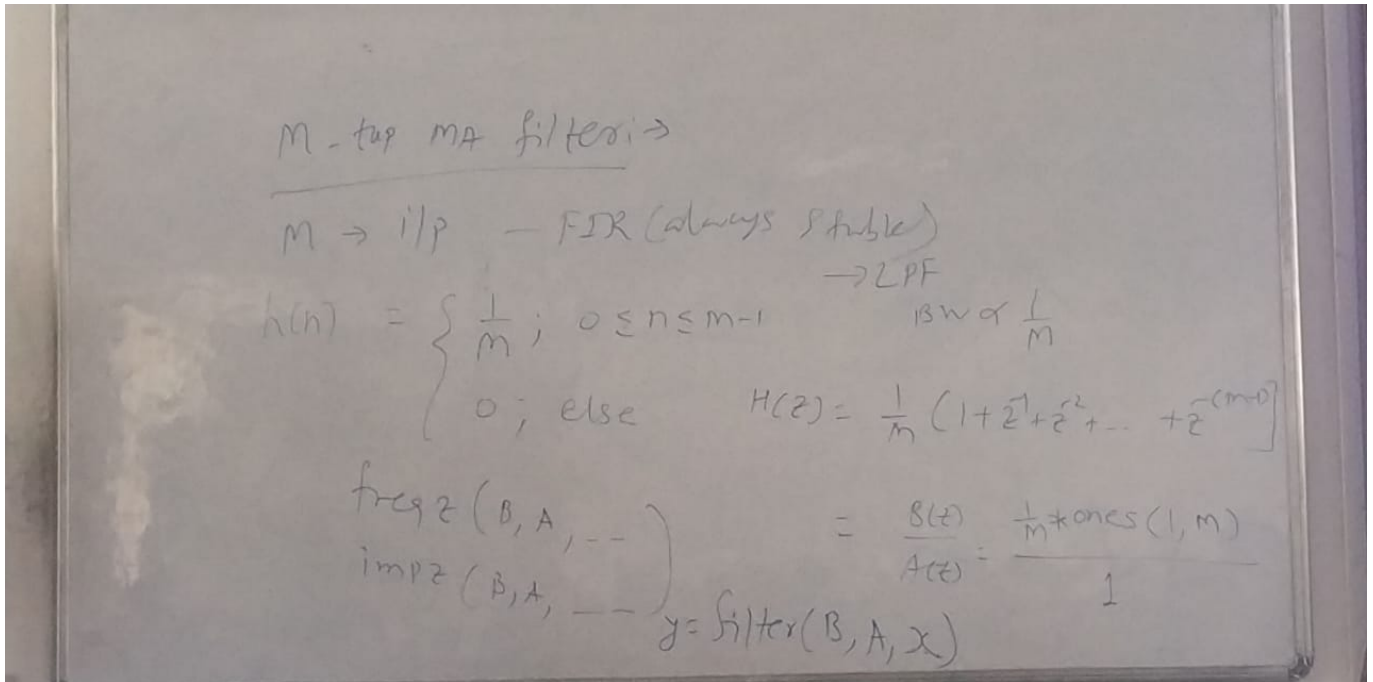 M-tap MA filter:→
M → i/p - FIR (always stable)
→ LPF
h(n) = { 1/M ; 0 ≤ n ≤ M-1
BW ∝ 1/M
0 ; else
H(z) = 1/M (1+z^-1+z^-2+... +z^-(M-1)]
freqz(B, A, --
impz(B, A, -- )
= B(z)/A(z) = 1/M*ones(1, M)/1
y = filter(B, A, x)